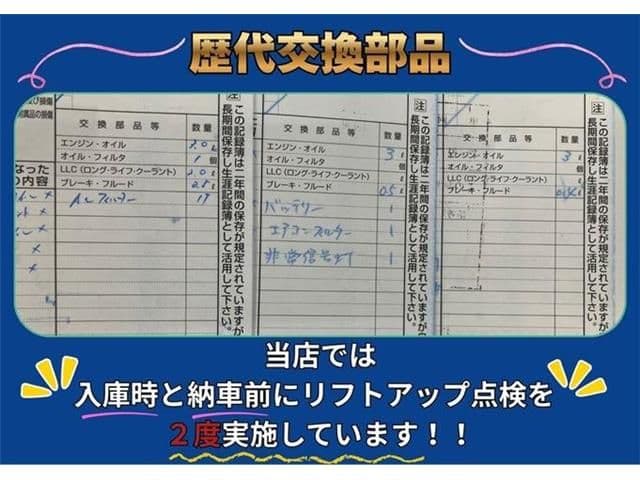 歴代交換部品
及び損傷
附属品の損傷
なった
の内容
交換部品等 数量
エンジン・オイル
オイル・フィルタ 1 個
LLC(ロング・ライフ・クーラント) 2.0 ℓ
ブレーキ・フルード
注 この記録簿は二年間の保存が規定されていますが
長期間保存し生涯記録簿として活用して下さい。
交換部品等 数量
エンジン・オイル 3 ℓ
オイル・フィルタ 個
LLC(ロング・ライフ・クーラント) ℓ
ブレーキ・フルード 0.5 ℓ
バッテリー 1
エアコンフィルター 1
非常信号灯 1
注 この記録簿は二年間の保存が規定されていますが
長期間保存し生涯記録簿として活用して下さい。
交換部品等 数量
エンジン・オイル 3 ℓ
オイル・フィルタ 個
LLC(ロング・ライフ・クーラント) ℓ
ブレーキ・フルード
注 この記録簿は二年間の保存が規定されていますが
長期間保存し生涯記録簿として活用して下さい。
当店では
入庫時と納車前にリフトアップ点検を
２度実施しています！！